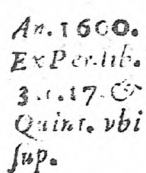 An. 1600.
Ex Per. lib.
3. c. 17. &
Quint. vbi
ſup.